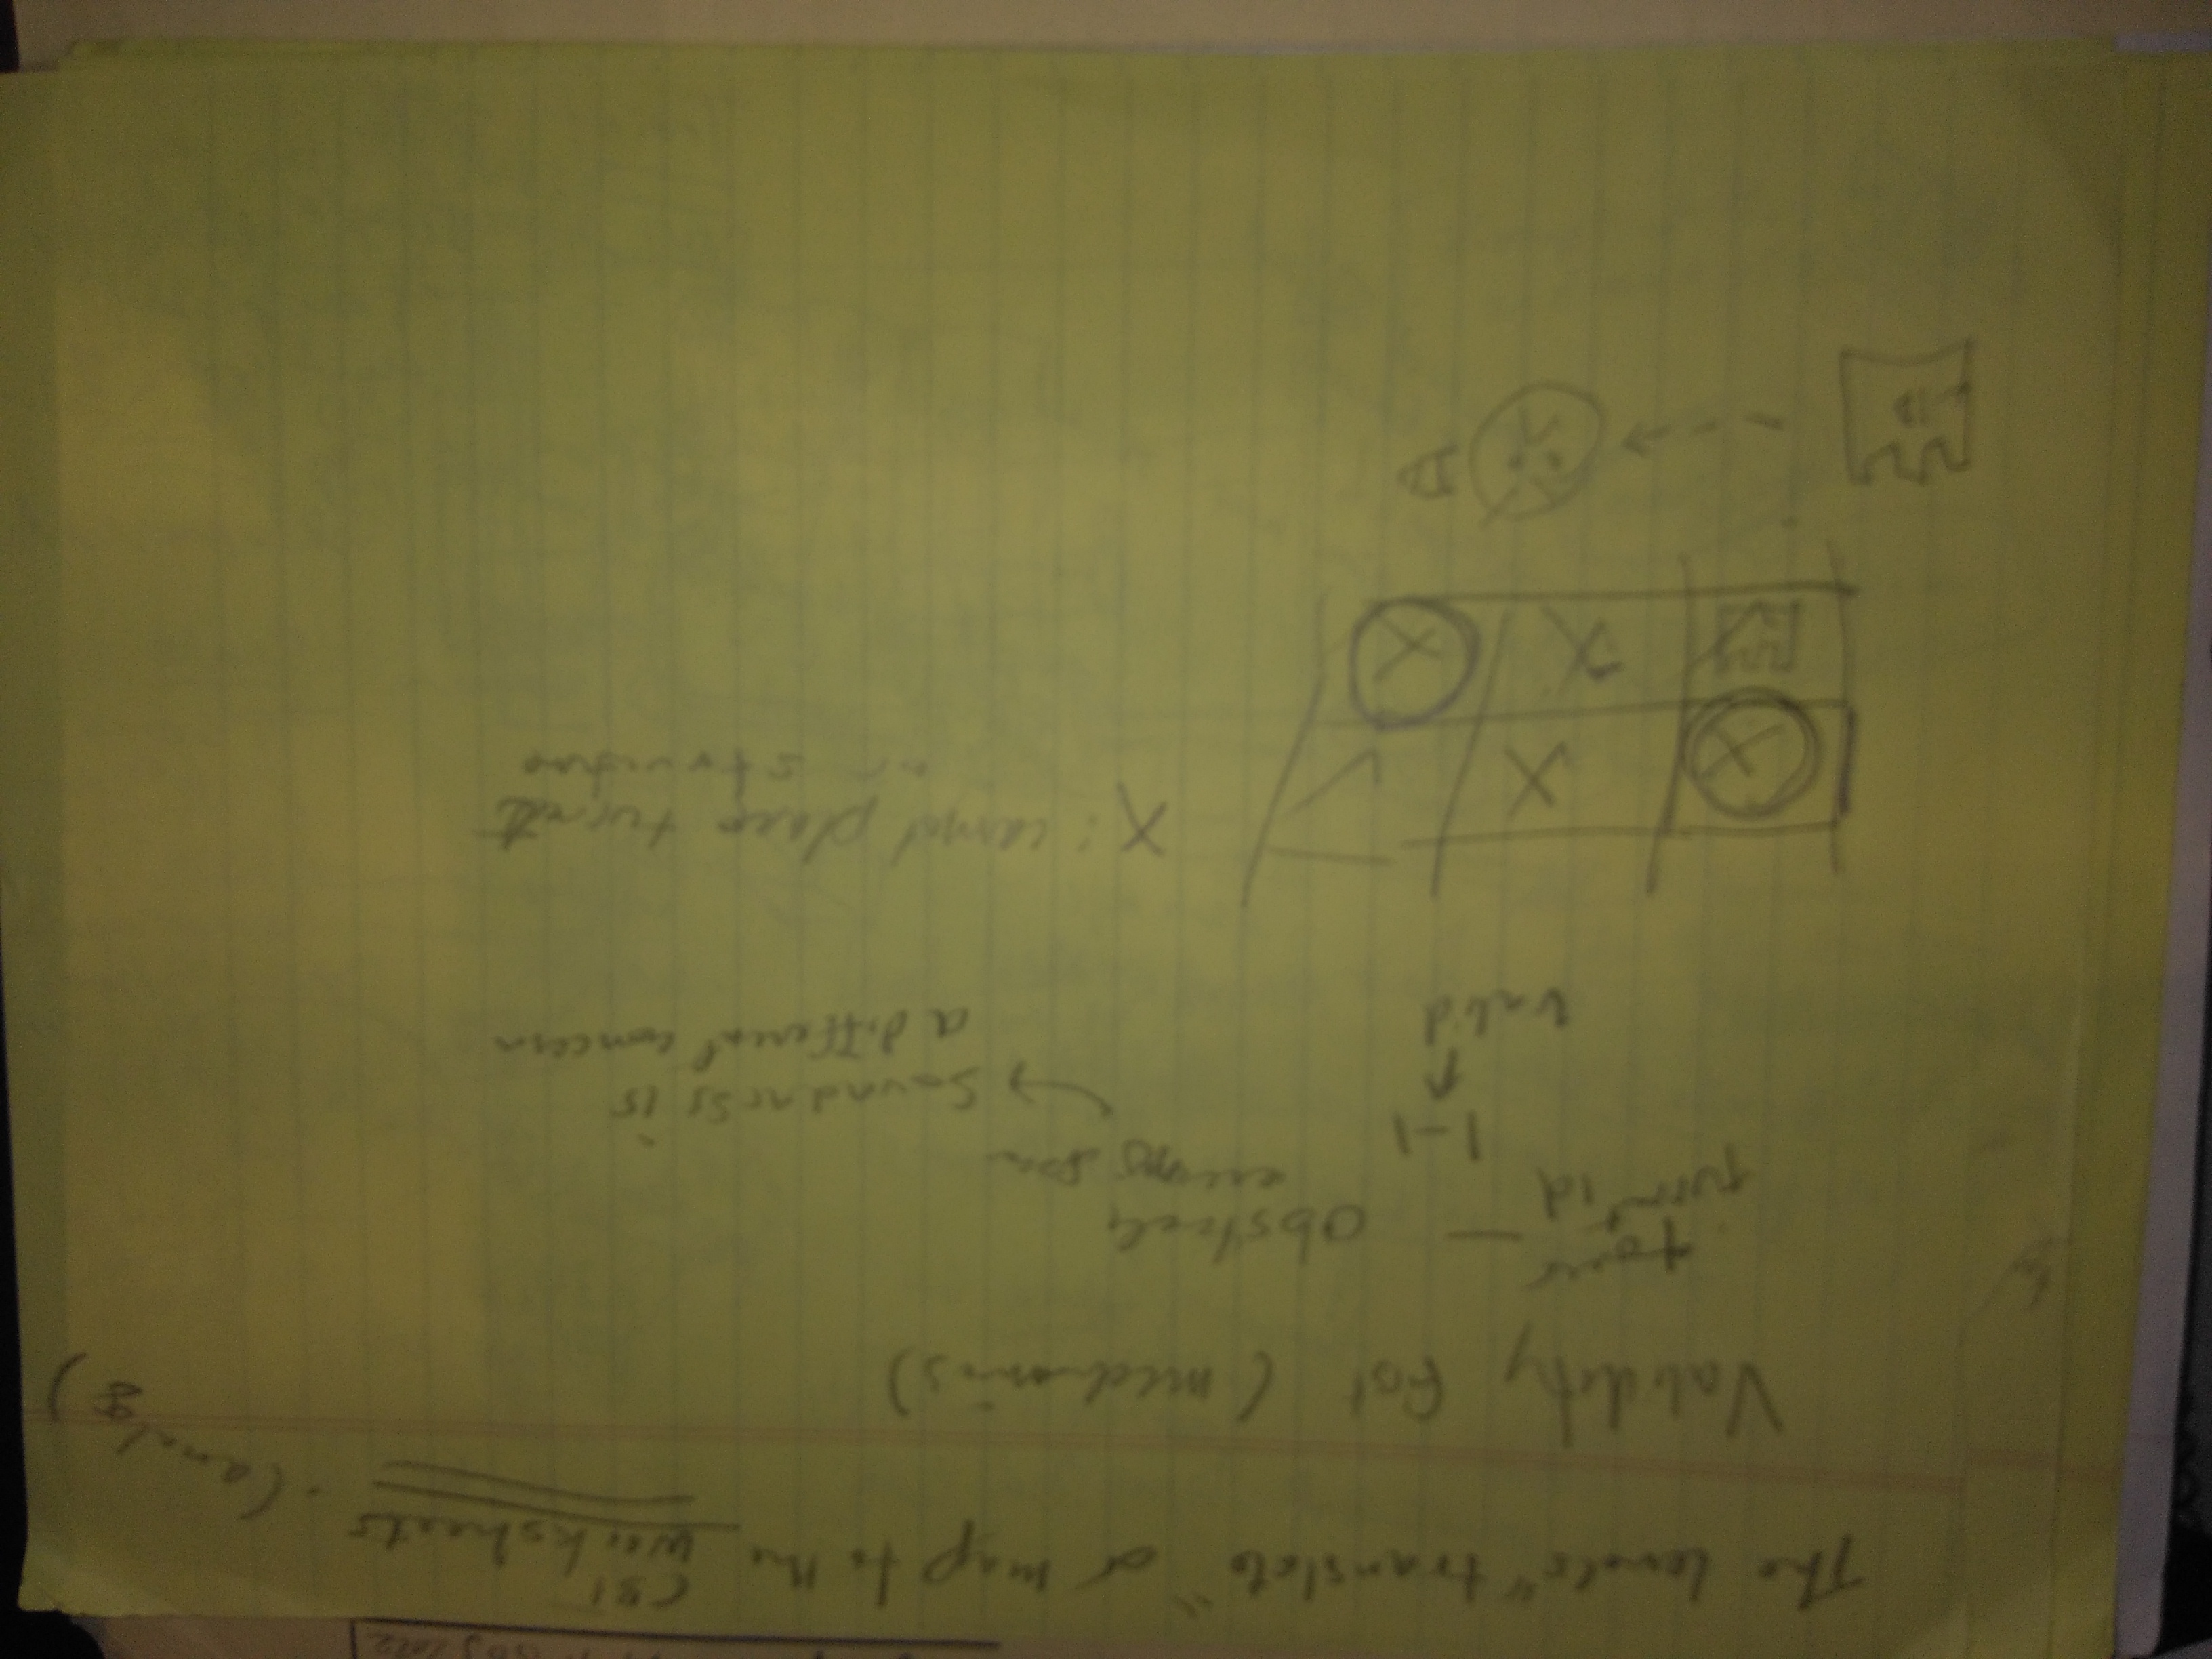 2022
CBT
The levels "translate" or map to the worksheets. (analog)
Validity first (mechanics)
tower — obstacle
turret id enemy
1–1
↑
valid
→ Soundness is
a different concern
X X ✓
X X
X: cannot place turret
or structure
ID
ID